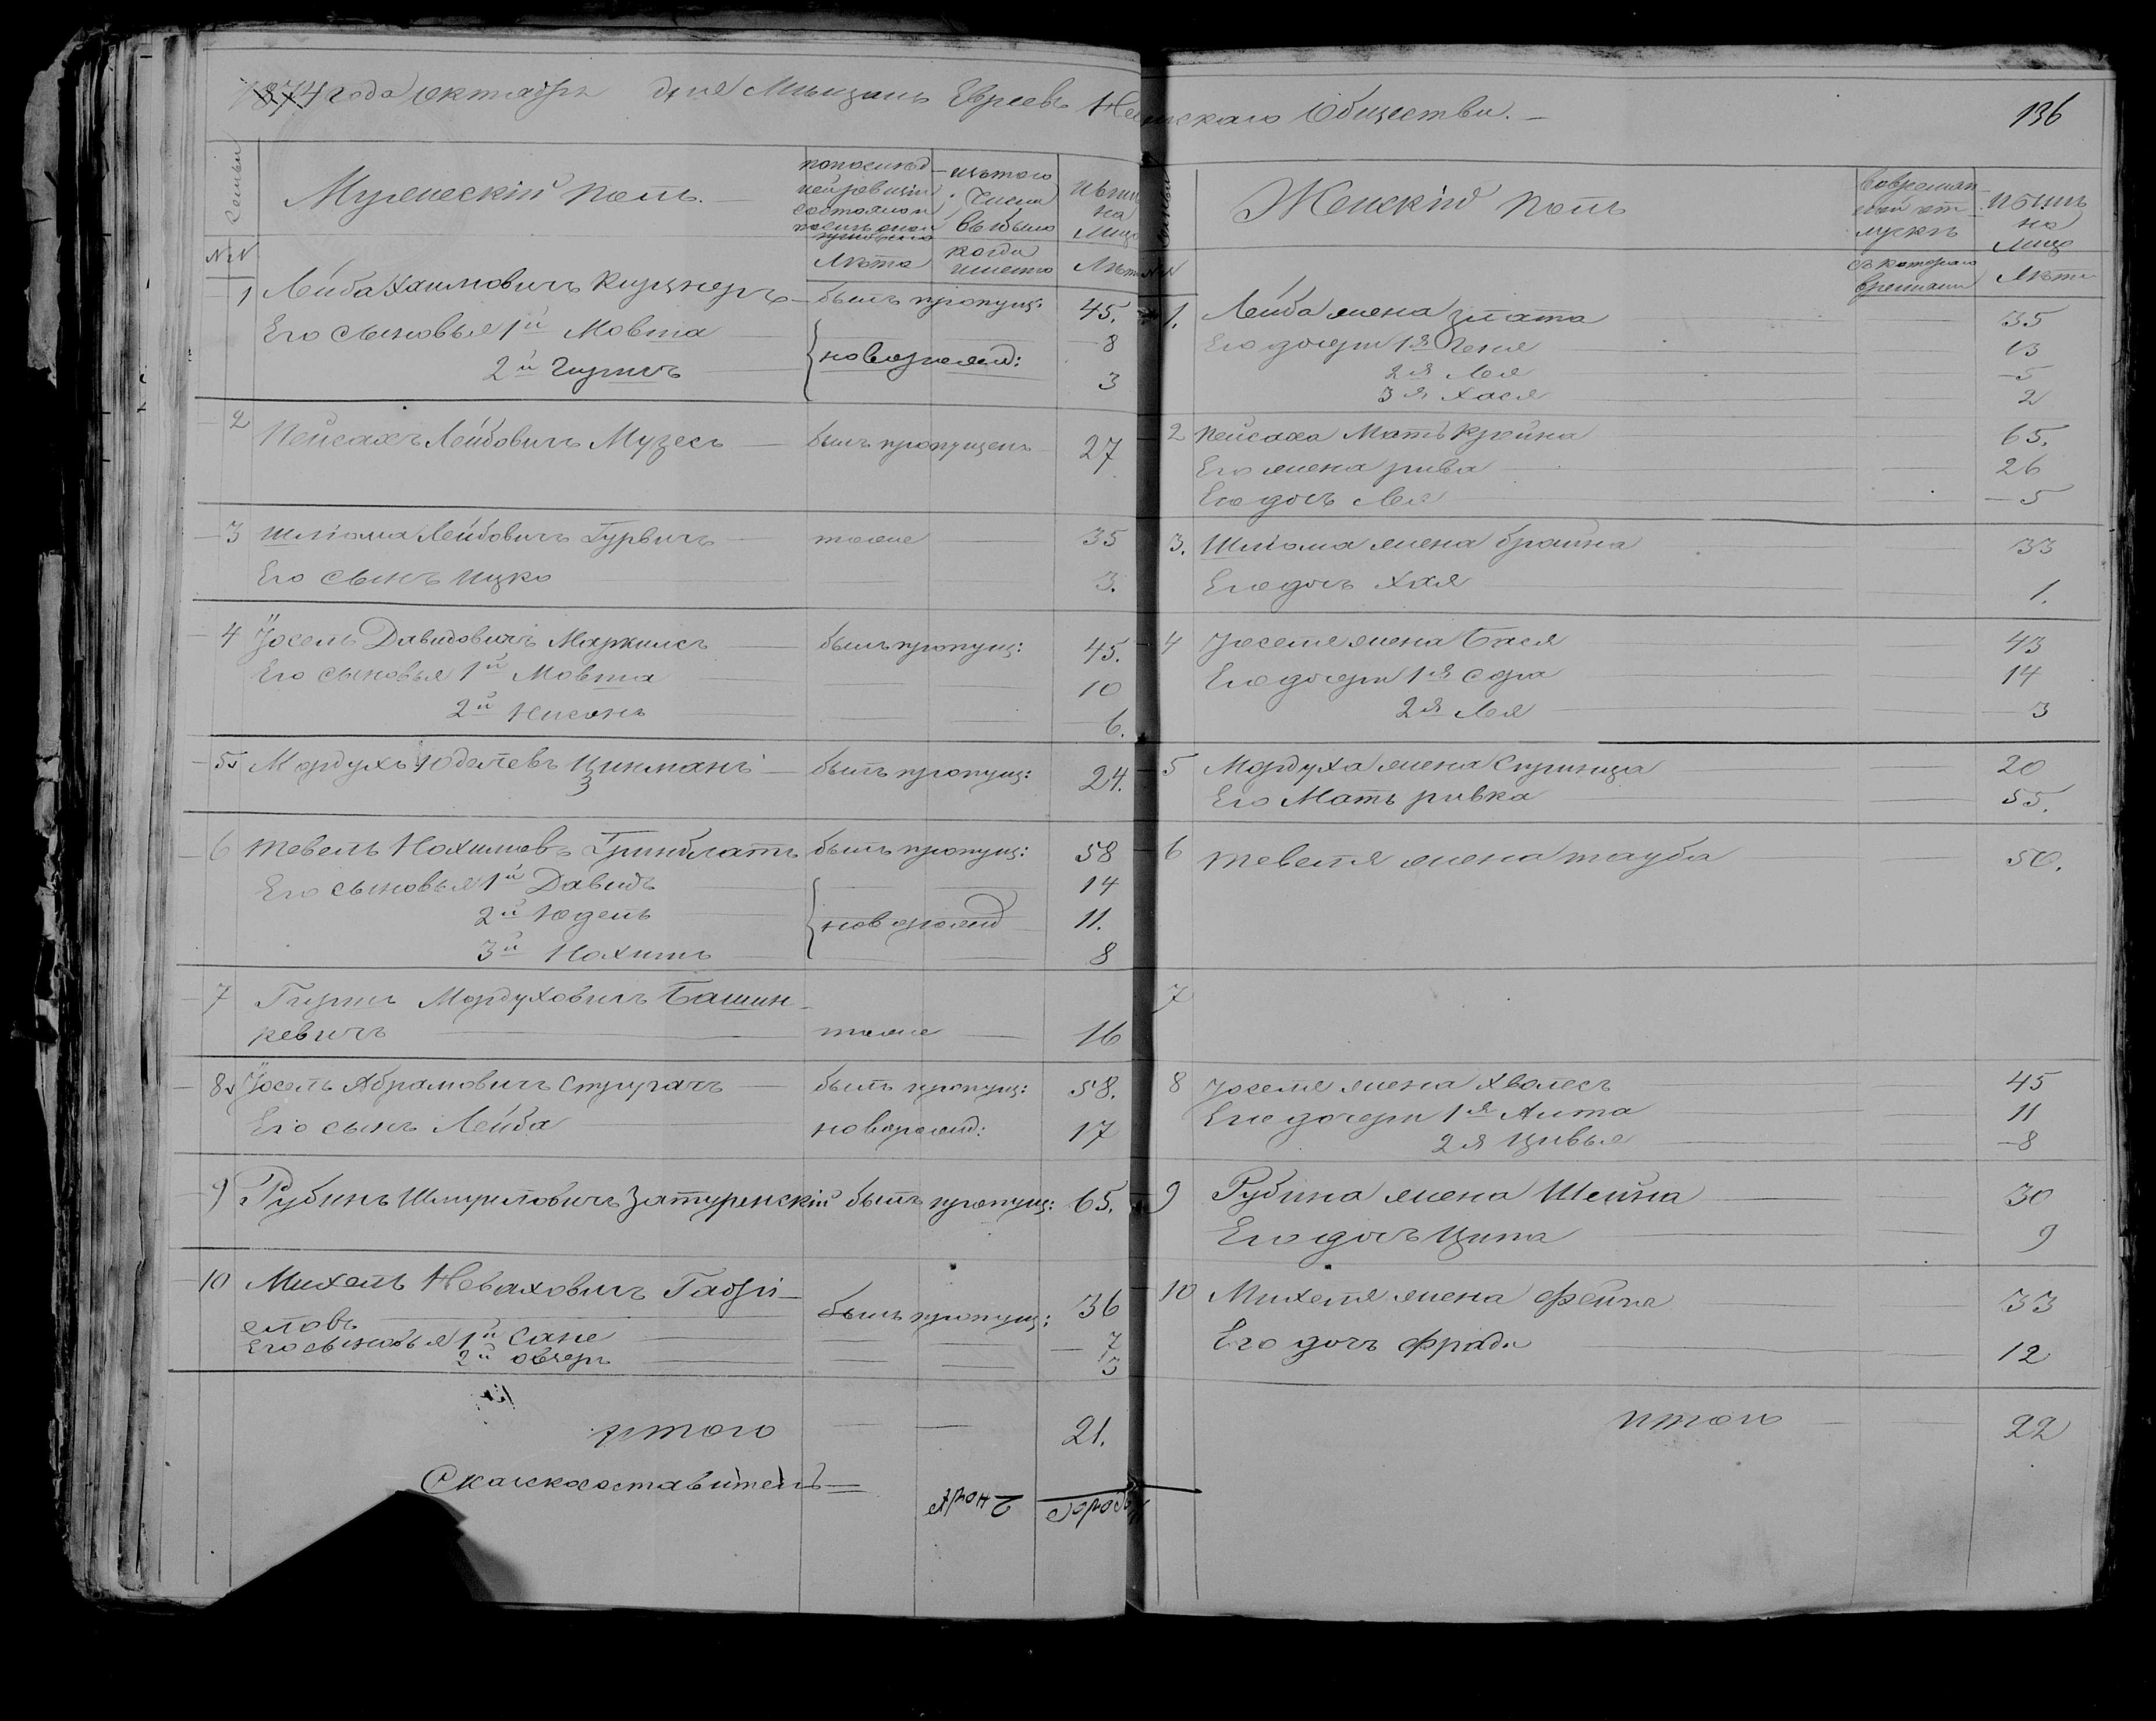 1874 года октября дня Мещанъ Евреевъ скаго Общества.
136
Семьи
Мужескій полъ.
NN
Лѣта
изъ того числа выбыло
когда именно
на лицо
Лѣта
1 Лейба Хаимовичъ Кирзнеръ былъ пропущ: 45.
Его сыновья 1й Мовша 8
2й Гиршъ новорожд: 3
2 Пейсахъ Лейбовичъ Музесъ былъ пропущенъ 27
3 Шлiома Лейбовичъ Гурвичъ тоже 35
Его сынъ Ицко 3.
4 Іосель Давидовичъ Маркилсъ былъ пропущ: 45.
Его сыновья 1й Мовша 10
2й Нисонъ 6.
5 Мордухъ Юделевъ Цикманъ былъ пропущ: 24.
6 Тевель Нохимовъ Гринблатъ былъ пропущ: 58
Его сыновья 1й Давидъ 14
2й Юдель новорожд 11.
3й Нохимъ 8
7 Гиршъ Мордуховичъ Башин-
кевичъ тоже 16
8 Іосель Абрамовичъ Стругачъ былъ пропущ: 58.
Его сынъ Лейба новорожд: 17
9 Рубинъ Шмуиловичъ Затуренскій былъ пропущ: 65.
10 Михель Новаховичъ Габрі-
еловъ былъ пропущ: 36
Его сыновья 1й Сане 7
2й Овзеръ 3
итого 21.
Сказкосоставитель
Женскій полъ
NN
во временной отлучкѣ
съ котораго времени
на лицо
Лѣта
1. Лейба жена Злата 35
Его дочери 1я Геня 13
2я Лея 5
3я Хася 2
2 Пейсаха Мать Кройна 65.
Его жена Рива 26
Его дочь Лея 5
3. Шлiома жена Брайна 33
Его дочь Хая 1.
4 Іоселя жена Бася 43
Его дочери 1я Сора 14
2я Лея 3
5 Мордуха жена Сиринца 20
Его Мать Ривка 55.
6 Тевеля жена Тауба 50.
7
8 Іоселя жена Хволесъ 45
Его дочери 1я Алта 11
2я Цивья 8
9 Рубина жена Шейна 30
Его дочь Ципа 9
10 Михеля жена Фейга 33
Его дочь Фрада 12
итого 22